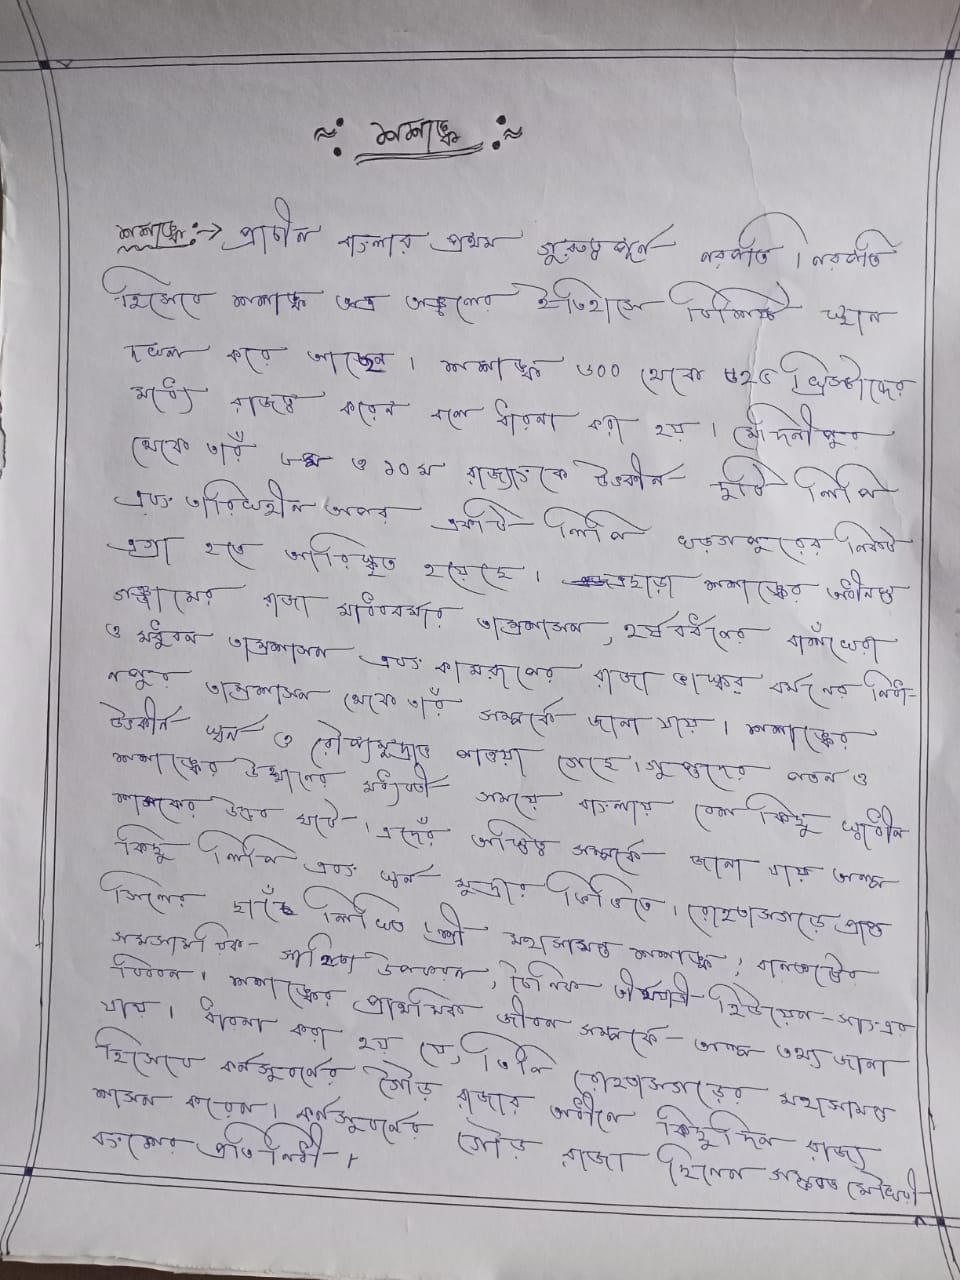 শশাঙ্ক
শশাঙ্ক :→ প্রাচীন বাংলার প্রথম গুরুত্বপূর্ন নরপতি। নরপতি
হিসেবে শশাঙ্ক অত্র অঞ্চলের ইতিহাসে বিশিষ্ট স্থান
দখল করে আছেন। শশাঙ্ক ৬০০ থেকে ৬২৫ খ্রিস্টাব্দের
মধ্যে রাজত্ব করেন বলে ধারনা করা হয়। মেদিনীপুর
থেকে তাঁর ৮ম ও ১০ম রাজ্যাংকে উৎকীর্ন দুটি লিপি
এবং তারিখহীন অপর একটি লিপি খড়গপুরের নিকট
এগ্রা হতে আবিষ্কৃত হয়েছে। এছাড়া শশাঙ্কের অধীনস্ত
গঞ্জামের রাজা মাধববর্মার তাম্রশাসন, হর্ষবর্ধনের বাঁশখেরা
ও মধুবন তাম্রশাসন এবং কামরূপের রাজা ভাস্কর বর্মনের নিধা-
নপুর তাম্রশাসন থেকে তাঁর সম্পর্কে জানা যায়। শশাঙ্কের
উৎকীর্ন স্বর্ন ও রৌপ্যমুদ্রাও পাওয়া গেছে। গুপ্তদের পতন ও
শশাঙ্কের উত্থানের মধ্যবর্তী সময়ে বাংলায় বেশ কিছু স্বাধীন
শাসকের উদ্ভব ঘটে। এদের অস্তিত্ব সম্পর্কে জানা যায় অল্প
কিছু লিপি এবং স্বর্ন মুদ্রার ভিত্তিতে। রোহতাসগড়ে প্রাপ্ত
সিলের ছাঁচে লিখিত 'শ্রী মহাসামন্ত শশাঙ্ক', বানভট্টের
সমসাময়িক সাহিত্য উপকরন, চৈনিক তীর্থযাত্রী হিউয়েন-সাং-এর
বিবরন। শশাঙ্কের প্রাথমিক জীবন সম্পর্কে অল্প তথ্য জানা
যায়। ধারনা করা হয় যে, তিনি রোহতাসগড়ের মহাসামন্ত
হিসেবে কর্নসুবর্নের গৌড় রাজার অধীনে কিছুদিন রাজ্য
শাসন করেন। কর্নসুবর্নের গৌড় রাজা ছিলেন সম্ভবত মৌখরী
বংশের প্রতিনিধী।